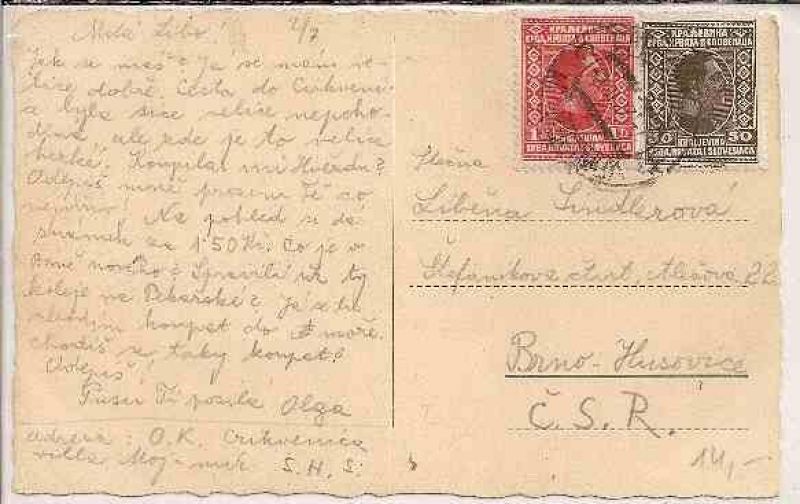 Milá Libo! 2/7
Jak se máš? Já se mám ve-
lice dobře. Cesta do Crikveni-
ca byla sice velice nepoho-
dlná, ale zde je to velice
hezké. Koupilas mi Hvězdu?
Odepiš mně prosím Tě co
nejdřív! Na pohled se dá
známek za 1.50 Kr. Co je v
Brně nového? Spravili už ty
koleje na Pekařské? Já se tu
chodím koupat do moře.
chodíš se taky koupat!
Odepiš!
Pusu Ti posílá Olga
adresa: O.K. Crikvenica
villa Moj-mir. S.H.S.
КРАЉЕВИНА
СРБА, ХРВАТА И СЛОВЕНАЦА
1 1 D
KRALJEVINA
SRBA, HRVATA I SLOVENACA
КРАЉЕВИНА
СРБА, ХРВАТА И СЛОВЕНАЦА
50 50
KRALJEVINA
SRBA, HRVATA I SLOVENACA
Slečna
Liběna Sindlerová
Štefánikova čtvrt, Alešova 22
Brno-Husovice
Č.S.R.
14,-